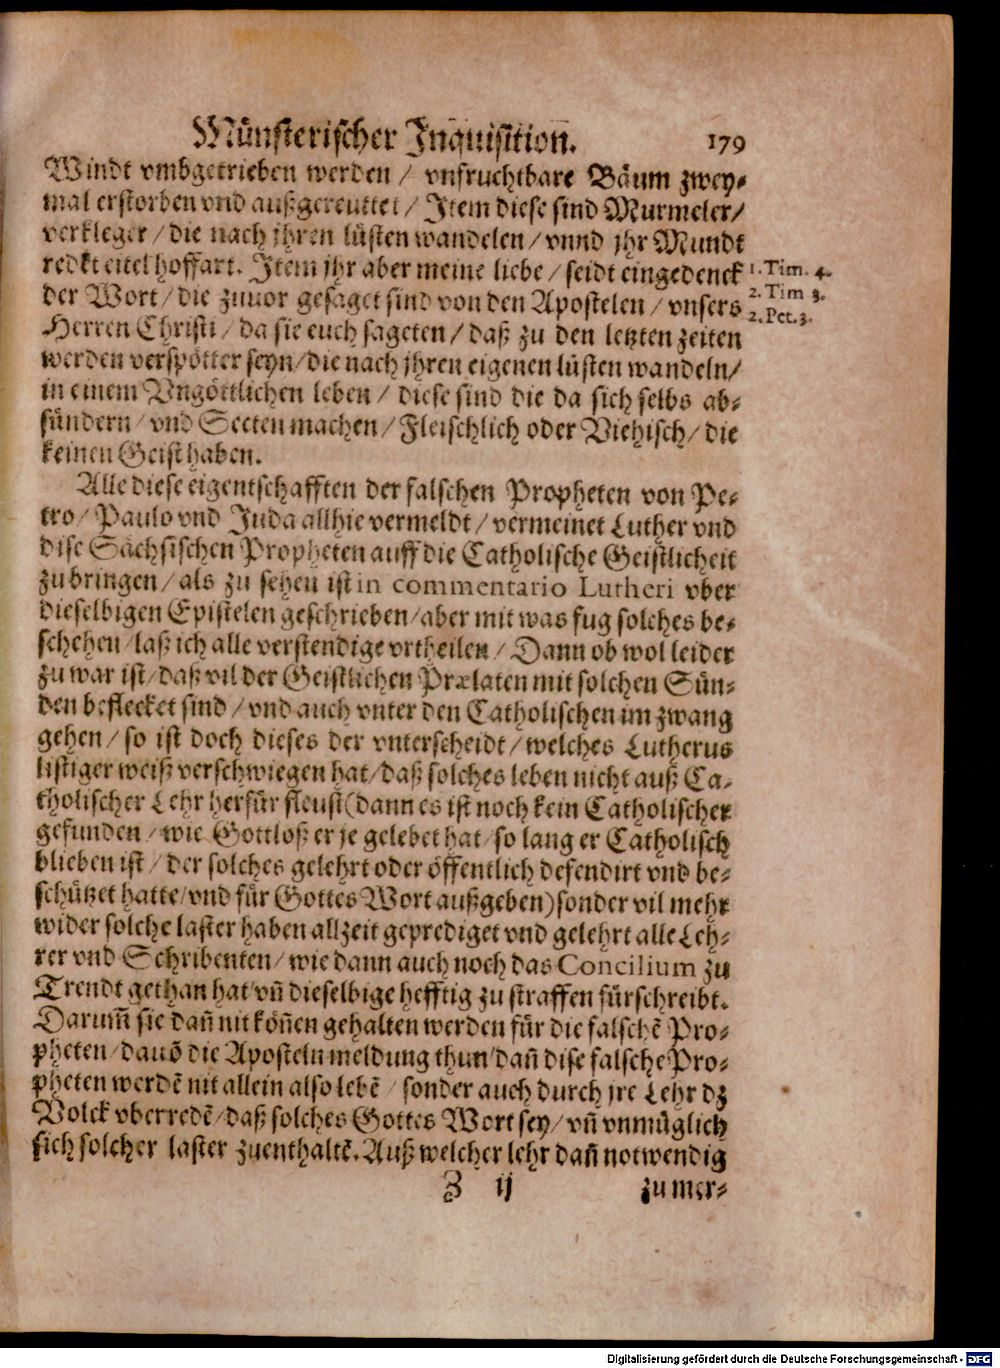 Münsterischer Inquisition. 179
Windt vmbgetrieben werden / vnfruchtbare Bäum zwey-
mal erstorben vnd außgereuttet / Item diese sind Murmeler/
verkleger / die nach jhren lüsten wandelen / vnnd jhr Mundt
redkt eitel hoffart. Item jhr aber meine liebe / seidt eingedenck
1. Tim. 4.
der Wort / die zuuor gesaget sind von den Apostelen / vnsers
2. Tim 3.
2. Pet. 3.
Herren Christi / da sie euch sageten / daß zu den letzten zeiten
werden verspötter seyn/ die nach jhren eigenen lüsten wandeln/
in einem Vngöttlichen leben / diese sind die da sich selbs ab-
sündern / vnd Secten machen / Fleischlich oder Viehisch / die
keinen Geist haben.
Alle diese eigentschafften der falschen Propheten von Pe-
tro / Paulo vnd Juda allhie vermeldt / vermeinet Luther vnd
dise Sächsischen Propheten auff die Catholische Geistlicheit
zu bringen / als zu sehen ist in commentario Lutheri vber
dieselbigen Epistelen geschrieben / aber mit was fug solches be-
schehen / laß ich alle verstendige vrtheilen / Dann ob wol leider
zu war ist / daß vil der Geistlichen Prælaten mit solchen Sün-
den beflecket sind / vnd auch vnter den Catholischen im zwang
gehen / so ist doch dieses der vnterscheidt / welches Lutherus
listiger weiß verschwiegen hat / daß solches leben nicht auß Ca-
tholischer Lehr herfür fleust (dann es ist noch kein Catholischer
gefunden / wie Gottloß er je gelebet hat / so lang er Catholisch
blieben ist / der solches gelehrt oder öffentlich defendirt vnd be-
schützet hatte / vnd für Gottes Wort außgeben) sonder vil mehr
wider solche laster haben allzeit geprediget vnd gelehrt alle Leh-
rer vnd Schribenten / wie dann auch noch das Concilium zu
Trendt gethan hat / vñ dieselbige hefftig zu straffen fürschreibt.
Darum̃ sie dañ nit köñen gehalten werden für die falschẽ Pro-
pheten / dauõ die Aposteln meldung thun / dañ dise falsche Pro-
pheten werdẽ nit allein also lebẽ / sonder auch durch jre Lehr dz
Volck vberredẽ / daß solches Gottes Wort sey / vñ vnmüglich
sich solcher laster zuenthaltẽ. Auß welcher lehr dañ notwendig
Z ij zu mer-
Digitalisierung gefördert durch die Deutsche Forschungsgemeinschaft - DFG